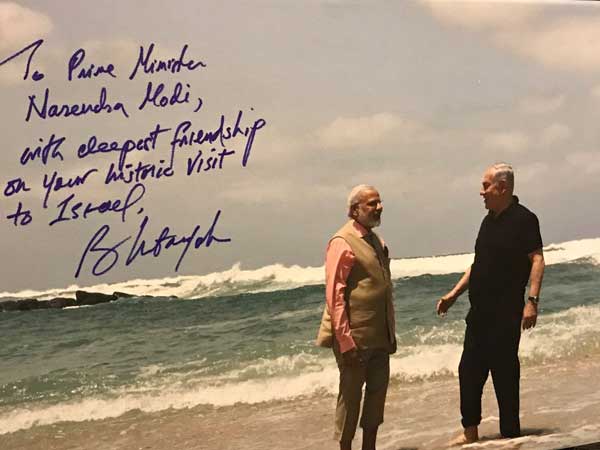 To Prime Minister
Narendra Modi,
with deepest friendship
on your historic visit
to Israel,